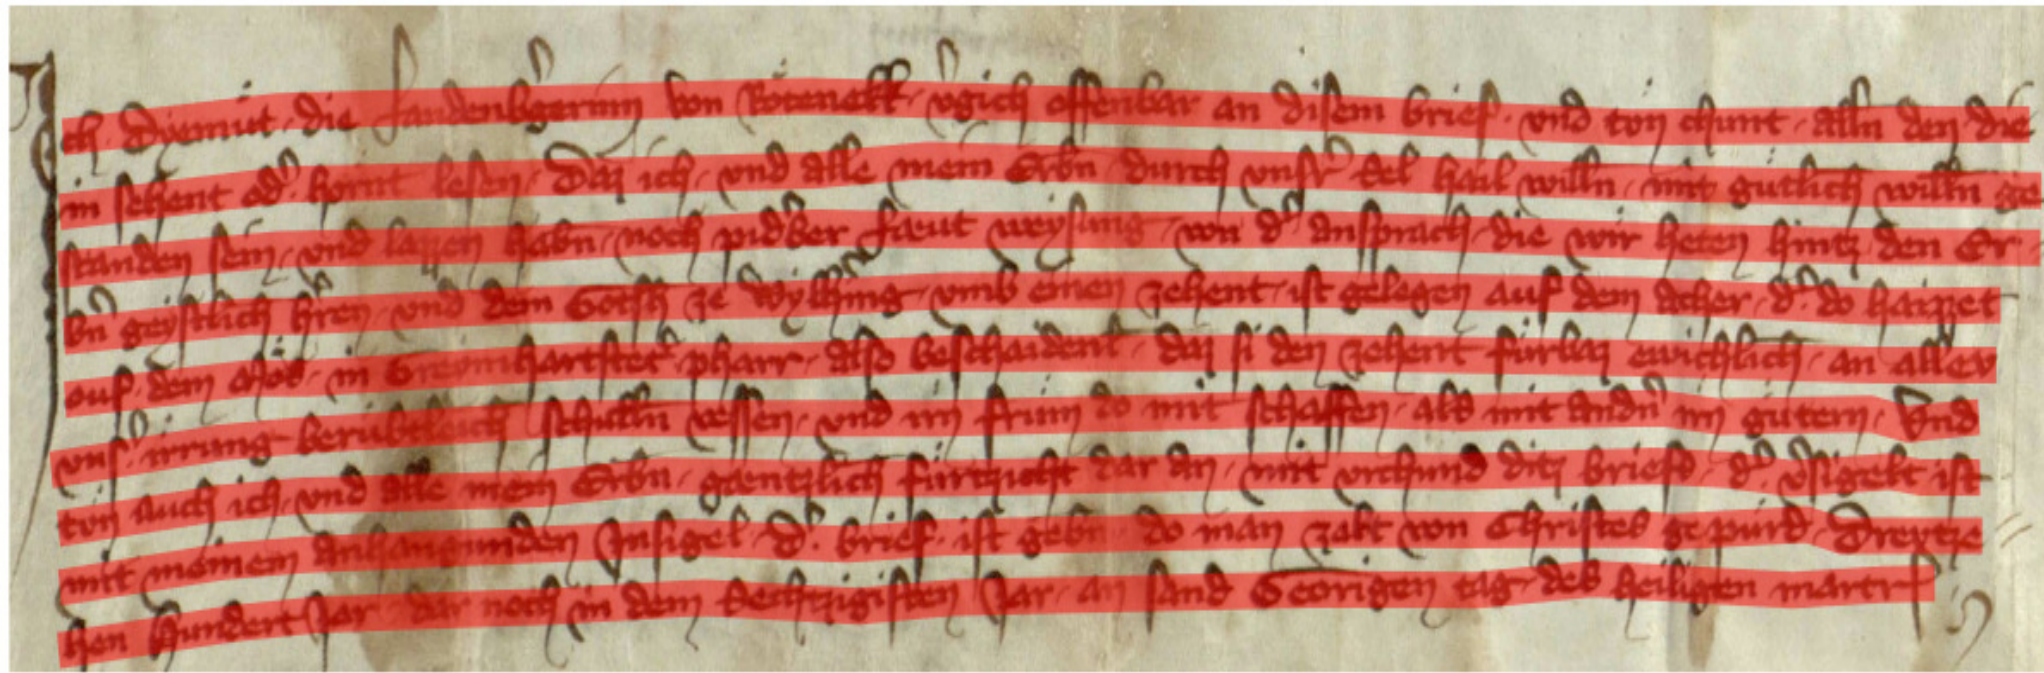 Ich Dyemut die Landenbgerinn von Rotenekk vgich offenbar an disem brief vnd tvn chunt alln den die
in sehent od hornt lesen Daz ich vnd alle mein Erbn durch vnsr sel hail willn mit gutlich willn ge
standen sein vnd lazzen habn noch pidber laeut weysung von d ansprach die wir heten hintz den Er
bn geystlich hren vnd dem Gotsh ze vmb einen zehent ist gelegen auf dem acher d do haizzet
auf dem in pharr also beschaident daz si den zehent furbaz ewichlich an allev
vns irrung schulln vessen vnd irn frum do mit schaffen als mit andn irn gutern Vnd
tvn auch ich vnd alle mein Erbn gaentzlich furtzicht dar an mit vrchund ditz briefs d vsigelt ist
mit meinem anhangunden Insigel d brief ist gebn do man zalt von Christes gepurd Drevtze
hen Hundert Jar dar noch in dem Sechtzigisten Jar an sand Georigen tag des heiligen martr